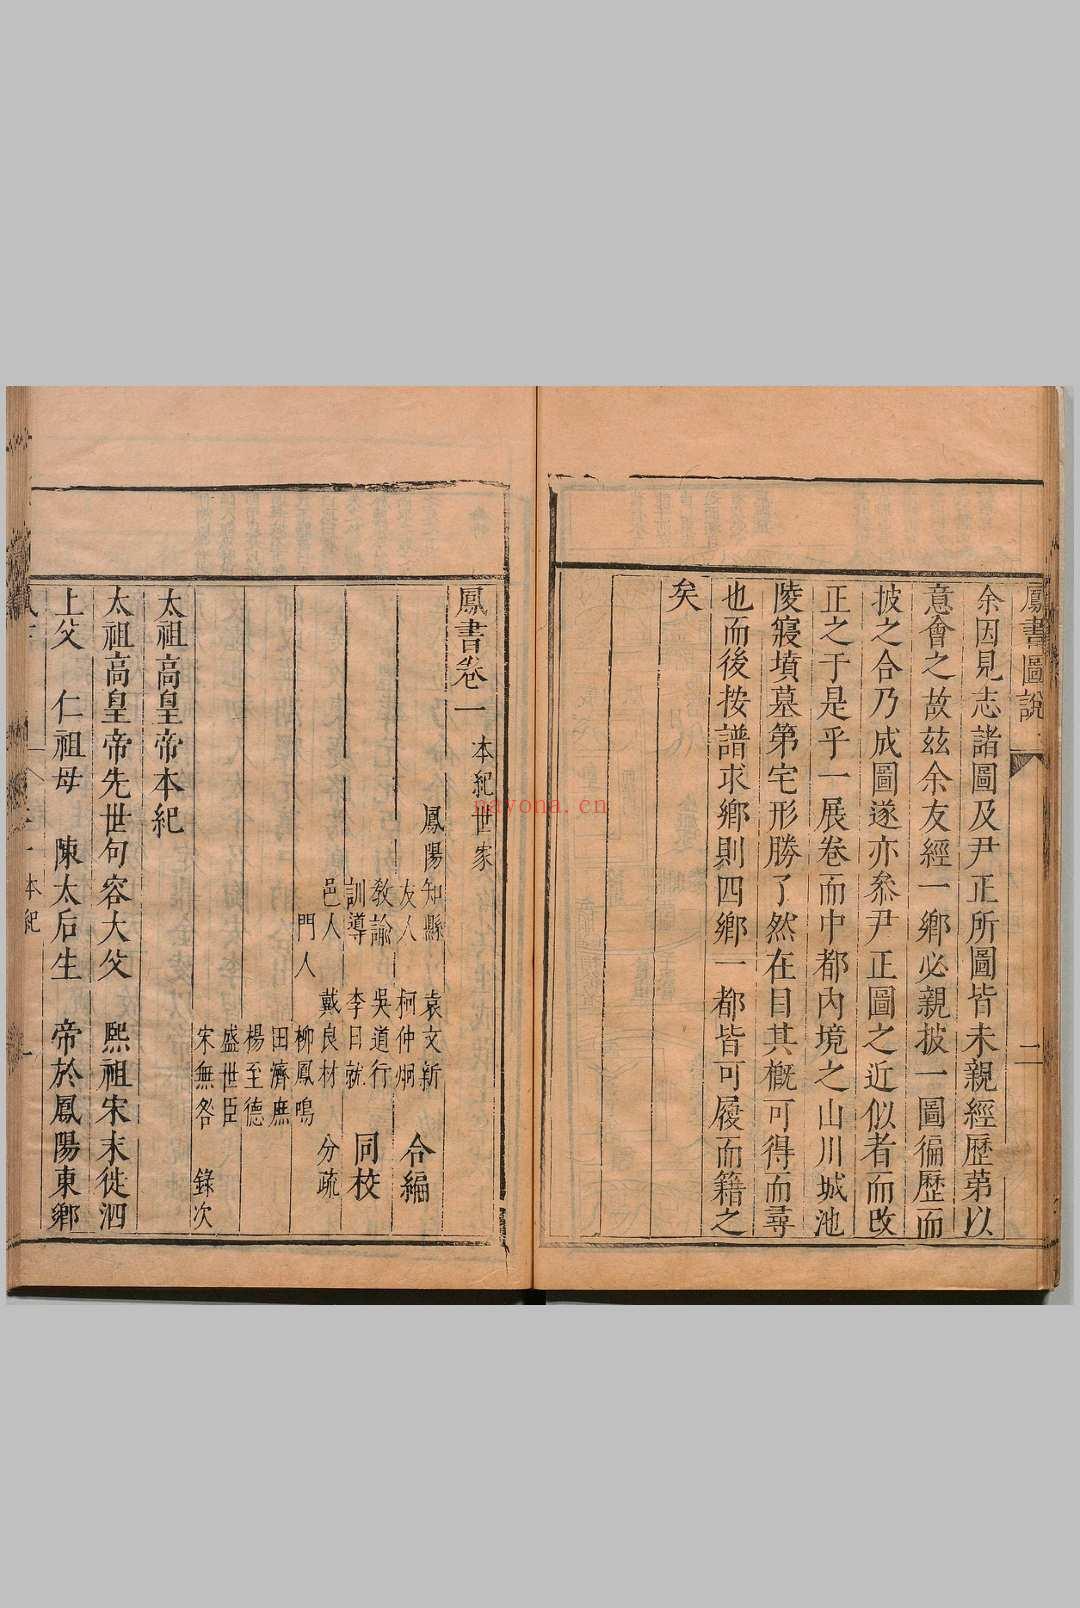 鳳書圖說
二
余因見志諸圖及尹正所圖皆未親經歷苐以
意會之故兹余友經一鄉必親披一圖徧歷而
披之合乃成圖遂亦叅尹正圖之近似者而攺
正之于是乎一展卷而中都內境之山川城池
陵寢墳墓第宅形勝了然在目其槪可得而尋
也而後按譜求鄉則四鄉一都皆可履而籍之
矣
鳳書卷一 本紀世家
鳳陽知縣 袁文新
友人 柯仲炯 合編
教諭 吳道行
訓導 李日就 同校
邑人 戴良材 分疏
門人 柳鳳鳴
田濟庶
楊至德
盛世臣
宋無咎 錄次
太祖高皇帝本紀
太祖高皇帝先世句容大父 熙祖宋末徙泗
上父 仁祖母 陳太后生 帝於鳳陽東鄉
本紀
nayona.cn